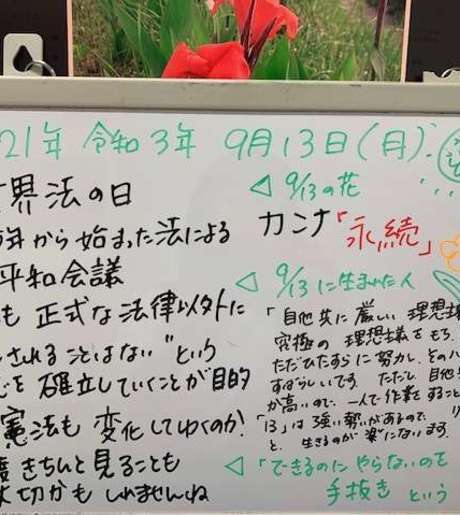 21年 令和3年 9月13日(月)
世界法の日
から始まった法による
平和会議
も 正式な法律以外に
されることはない"という
を確立していくことが目的
憲法も 変化してゆくのか?
度きちんと見ることも
大切かもしれませんね
◁ 9/13の花
カンナ「永続」
◁ 9/13に生まれた人
「自他共に厳しい 理想
究極の 理想 をもち、
ただひたすらに努力し、その
すばらしいです。ただし、自他
が高いので、一人で作業をすること
「13」は強い勢いがあるので、
と、生きるのが楽になります。
◁「できるのに やらないので
手抜き という